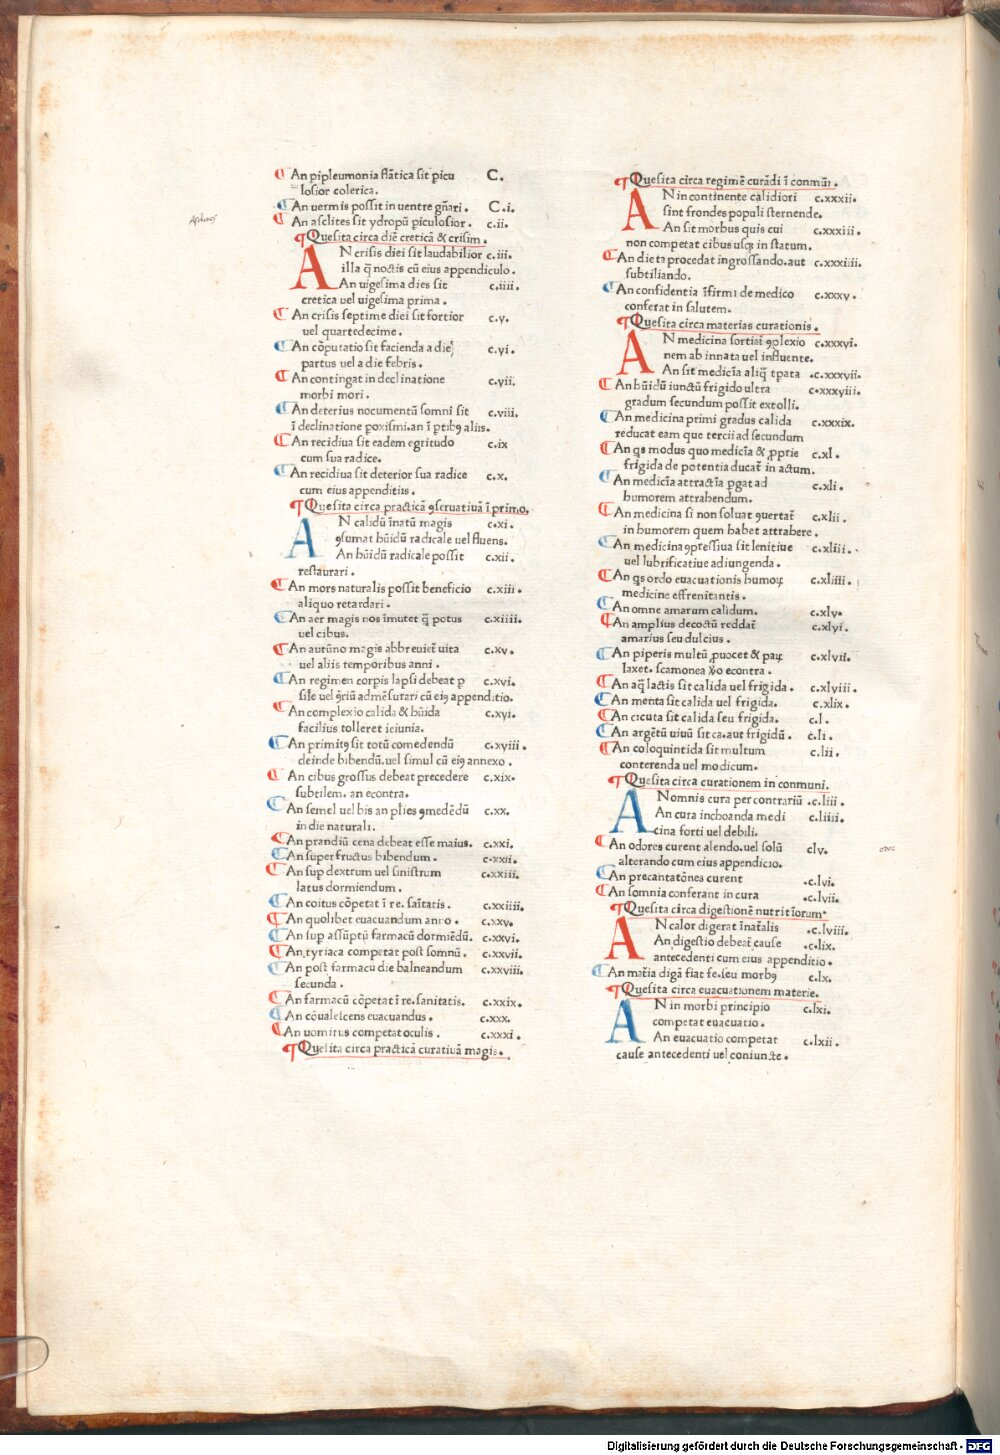 An pipleumonia flãtica sit picu C.
losior colerica.
An uermis possit in uentre gñari. C.i.
An asclites sit ydropũ piculosior. c.ii.
Quesita circa diẽ creticã & crisim.
AN crisis diei sit laudabilior c.iii.
illa q̃ noctis cũ eius appendiculo.
An uigesima dies sit c.iiii.
cretica uel uigesima prima.
An crisis septime diei sit fortior c.v.
uel quartedecime.
An cõputatio sit facienda a die c.vi.
partus uel a die febris.
An contingat in declinatione c.vii.
morbi mori.
An deterius nocumentũ somni sit c.viii.
ĩ declinatione poxismi.an ĩ ptibꝯ aliis.
An recidiua sit eadem egritudo c.ix
cum sua radice.
An recidiua sit deterior sua radice c.x.
cum eius appenditiis.
Quesita circa practicã ꝯseruatiuã ĩ primo.
AN calidũ ĩnatũ magis c.xi.
ꝯsumat hũidũ radicale uel fluens.
An hũidũ radicale possit c.xii.
restaurari.
An mors naturalis possit beneficio c.xiii.
aliquo retardari.
An aer magis nos ĩmutet q̃ potus c.xiiii.
uel cibus.
An autũno magis abbreuiet̃ uita c.xv.
uel aliis temporibus anni.
An regimen corpis lapsi debeat p c.xvi.
sile uel ꝯriũ admẽsurari cũ eiꝯ appenditio.
An complexio calida & hũida c.xyi.
facilius tolleret ieiunia.
An primitꝯ sit totũ comedendũ c.xyiii.
deinde bibendũ.uel simul cũ eiꝯ annexo.
An cibus grossus debeat precedere c.xix.
subtilem. an econtra.
An semel uel bis an plies ꝯmedẽdũ c.xx.
in die naturali.
An prandiũ cena debeat esse maius. c.xxi.
An super fructus bibendum. c.xxii.
An sup dextrum uel sinistrum c.xxiii.
latus dormiendum.
An coitus cõpetat ĩ re. sãitatis. c.xxiiii.
An quolibet euacuandum anno. c.xxv.
An sup assũptũ farmacũ dormiẽdũ. c.xxvi.
An tyriaca competat post somnũ. c.xxvii.
An post farmacũ die balneandum c.xxviii.
secunda.
An farmacũ cõpetat ĩ re.sanitatis. c.xxix.
An cõualescens euacuandus. c.xxx.
An uomitus competat oculis. c.xxxi.
Quesita circa practicã curatiuã magis.
Quesita circa regimẽ curãdi ĩ conmũi.
AN in continente calidiori c.xxxii.
sint frondes populi sternende.
An sit morbus quis cui c.xxxiii.
non competat cibus usq̃ in statum.
An dieta procedat ingrossando.aut c.xxxiiii.
subtiliando.
An confidentia ĩfirmi de medico c.xxxv.
conferat in salutem.
Quesita circa materias curationis.
AN medicina sortiat̃ ꝯplexio c.xxxvi.
nem ab innata uel influente.
An sit medicĩa aliq̃ tpata .c.xxxvii.
An hũidũ iunctũ frigido ultra c.xxxyiii.
gradum secundum possit extolli.
An medicina primi gradus calida c.xxxix.
reducat eam que tercii ad secundum
An qs modus quo medicĩa & ꝓprie c.xl.
frigida de potentia ducat̃ in actum.
An medicĩa attractĩa pgat ad c.xli.
humorem attrahendum.
An medicina si non soluat ꝯuertat̃ c.xlii.
in humorem quem habet attrahere.
An medicina ꝯpressiua sit lenitiue c.xliii.
uel lubrificatiue adiungenda.
An qs ordo euacuationis humoꝝ c.xliiii.
medicine effrenitantis.
An omne amarum calidum. c.xlv.
An amplius decoctũ reddat̃ c.xlyi.
amarius seu dulcius.
An piperis multũ ꝓuocet & paꝝ c.xlvii.
laxet. scamonea ꝟo econtra.
An aq̃ lactis sit calida uel frigida. c.xlviii.
An menta sit calida uel frigida. c.xlix.
An cicuta sit calida seu frigida. c.l.
An argẽtũ uiuũ sit ca.aut frigidũ. c.li.
An coloquintida sit multum c.lii.
conterenda uel modicum.
Quesita circa curationem in conmuni.
AN omnis cura per contrariũ .c.liii.
An cura inchoanda medi c.liiii.
cina forti uel debili.
An odores curent alendo.uel solũ clv.
alterando cum eius appendicio.
An precantatões curent .c.lvi.
An somnia conferant in cura .c.lvii.
Quesita circa digestionẽ nutritĩorum.
AN calor digerat ĩnatalis .c.lviii.
An digestio debeat̃ cause .c.lix.
antecedenti cum eius appenditio.
An mat̃ia digã fiat fe.seu morbꝯ c.lx.
Quesita circa euacuationem materie.
AN in morbi principio c.lxi.
competat euacuatio.
An euacuatio competat c.lxii.
cause antecedenti uel coniuncte.
Digitalisierung gefördert durch die Deutsche Forschungsgemeinschaft - DFG